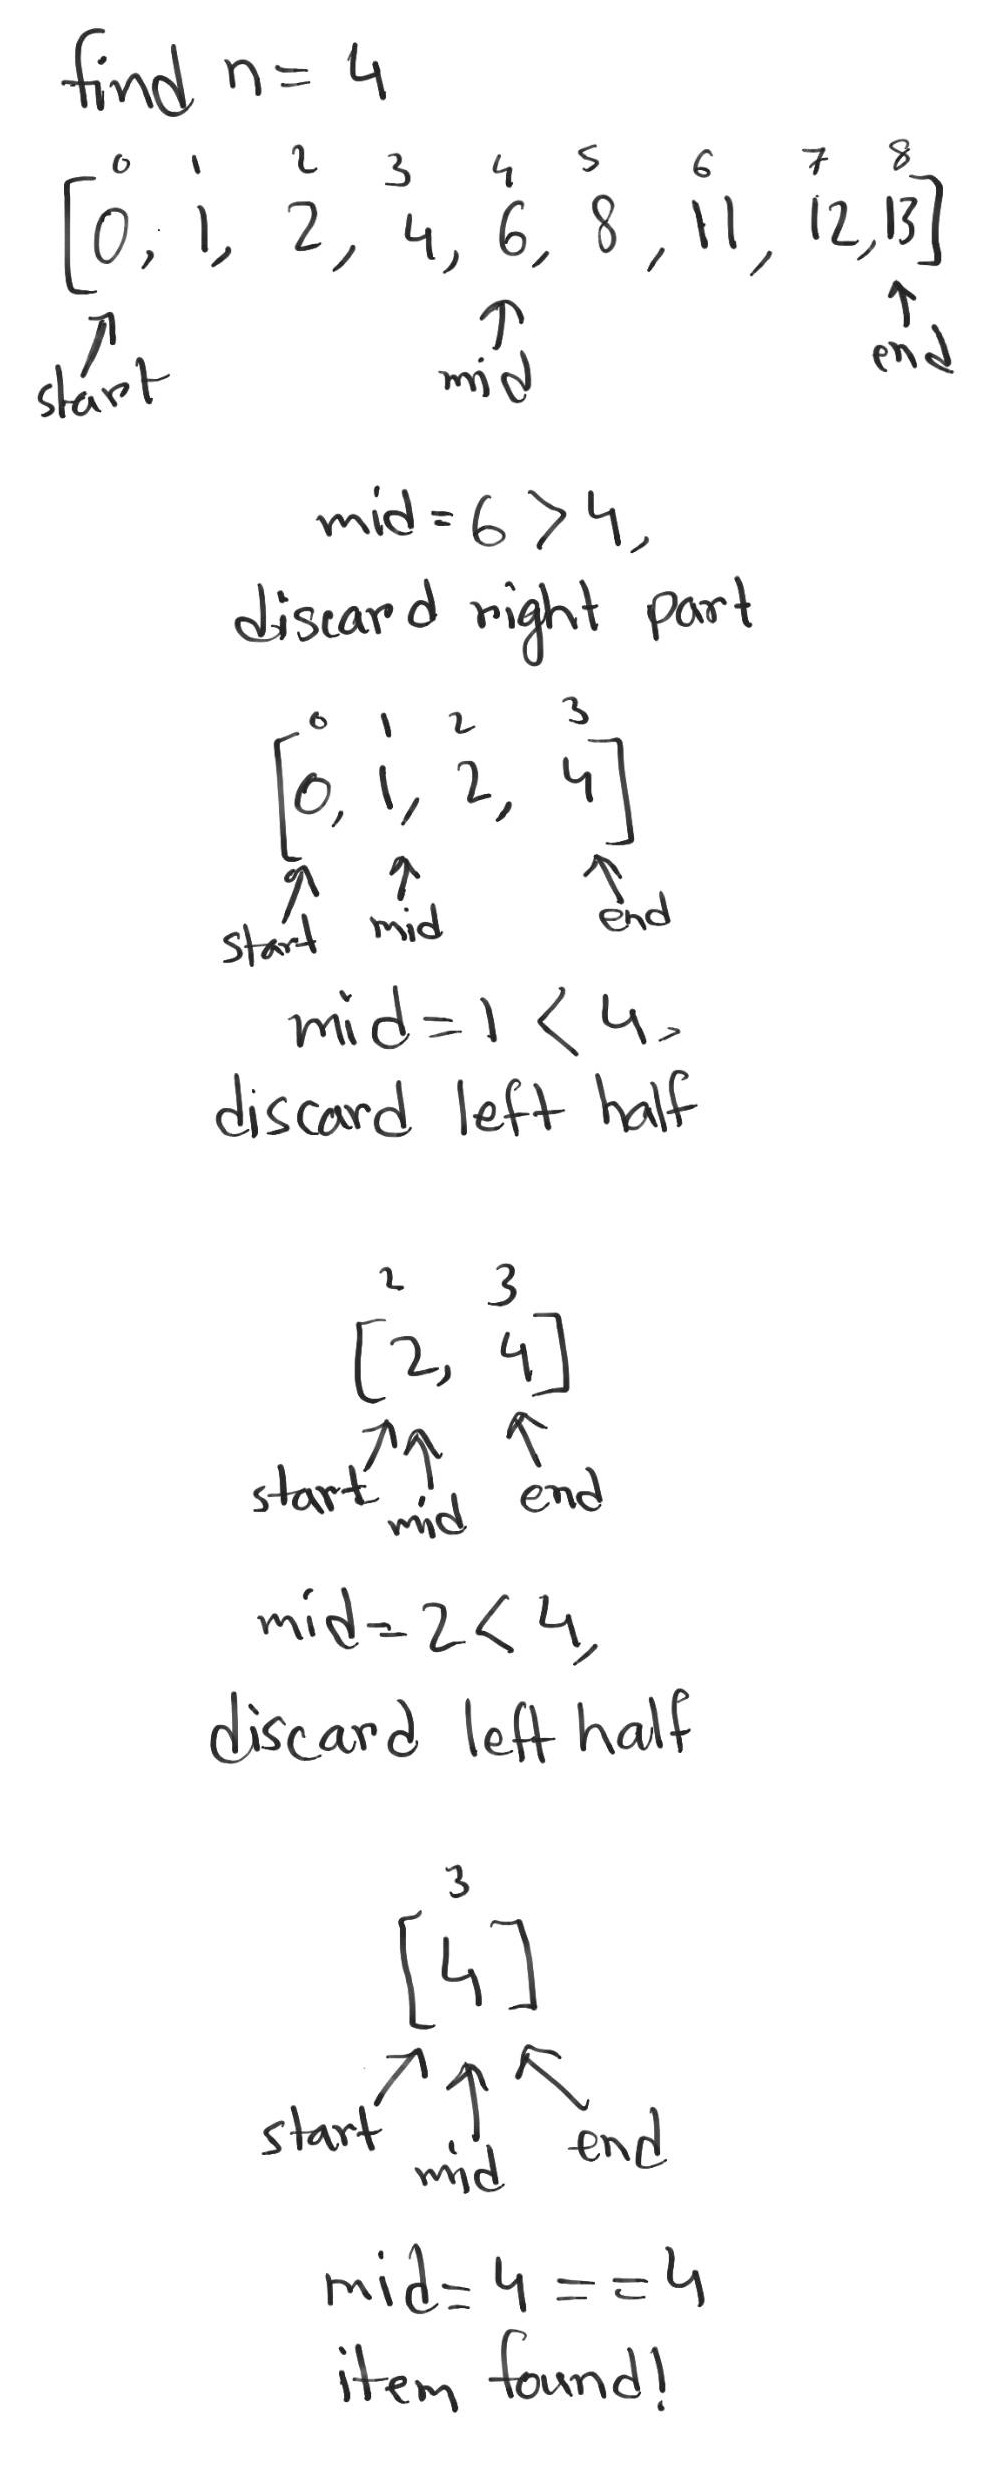 find n = 4
0 1 2 3 4 5 6 7 8
[0, 1, 2, 4, 6, 8, 11, 12, 13]
start mid end
mid = 6 > 4,
discard right part
0 1 2 3
[0, 1, 2, 4]
start mid end
mid = 1 < 4,
discard left half
2 3
[2, 4]
start mid end
mid = 2 < 4,
discard left half
3
[4]
start mid end
mid = 4 == 4
item found!